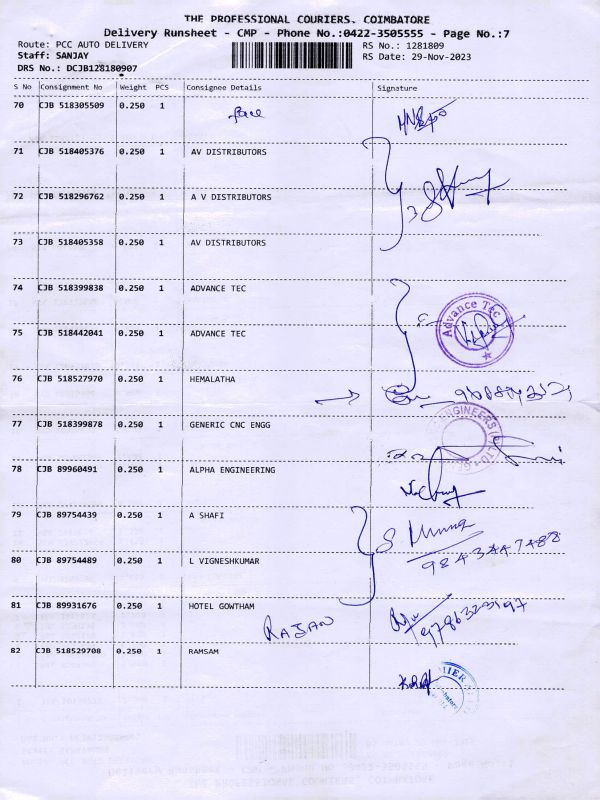 THE PROFESSIONAL COURIERS, COIMBATORE
Delivery Runsheet - CMP - Phone No.:0422-3505555 - Page No.:7
Route: PCC AUTO DELIVERY RS No.: 1281809
Staff: SANJAY RS Date: 29-Nov-2023
DRS No.: DCJB128180907
S No Consignment No Weight PCS Consignee Details Signature
70 CJB 518305509 0.250 1
71 CJB 518405376 0.250 1 AV DISTRIBUTORS
72 CJB 518296762 0.250 1 A V DISTRIBUTORS
73 CJB 518405358 0.250 1 AV DISTRIBUTORS
74 CJB 518399838 0.250 1 ADVANCE TEC
Advance Tec
75 CJB 518442041 0.250 1 ADVANCE TEC
76 CJB 518527970 0.250 1 HEMALATHA
77 CJB 518399878 0.250 1 GENERIC CNC ENGG
78 CJB 89960491 0.250 1 ALPHA ENGINEERING
79 CJB 89754439 0.250 1 A SHAFI
80 CJB 89754489 0.250 1 L VIGNESHKUMAR
81 CJB 89931676 0.250 1 HOTEL GOWTHAM
RAJAN
82 CJB 518529708 0.250 1 RAMSAM